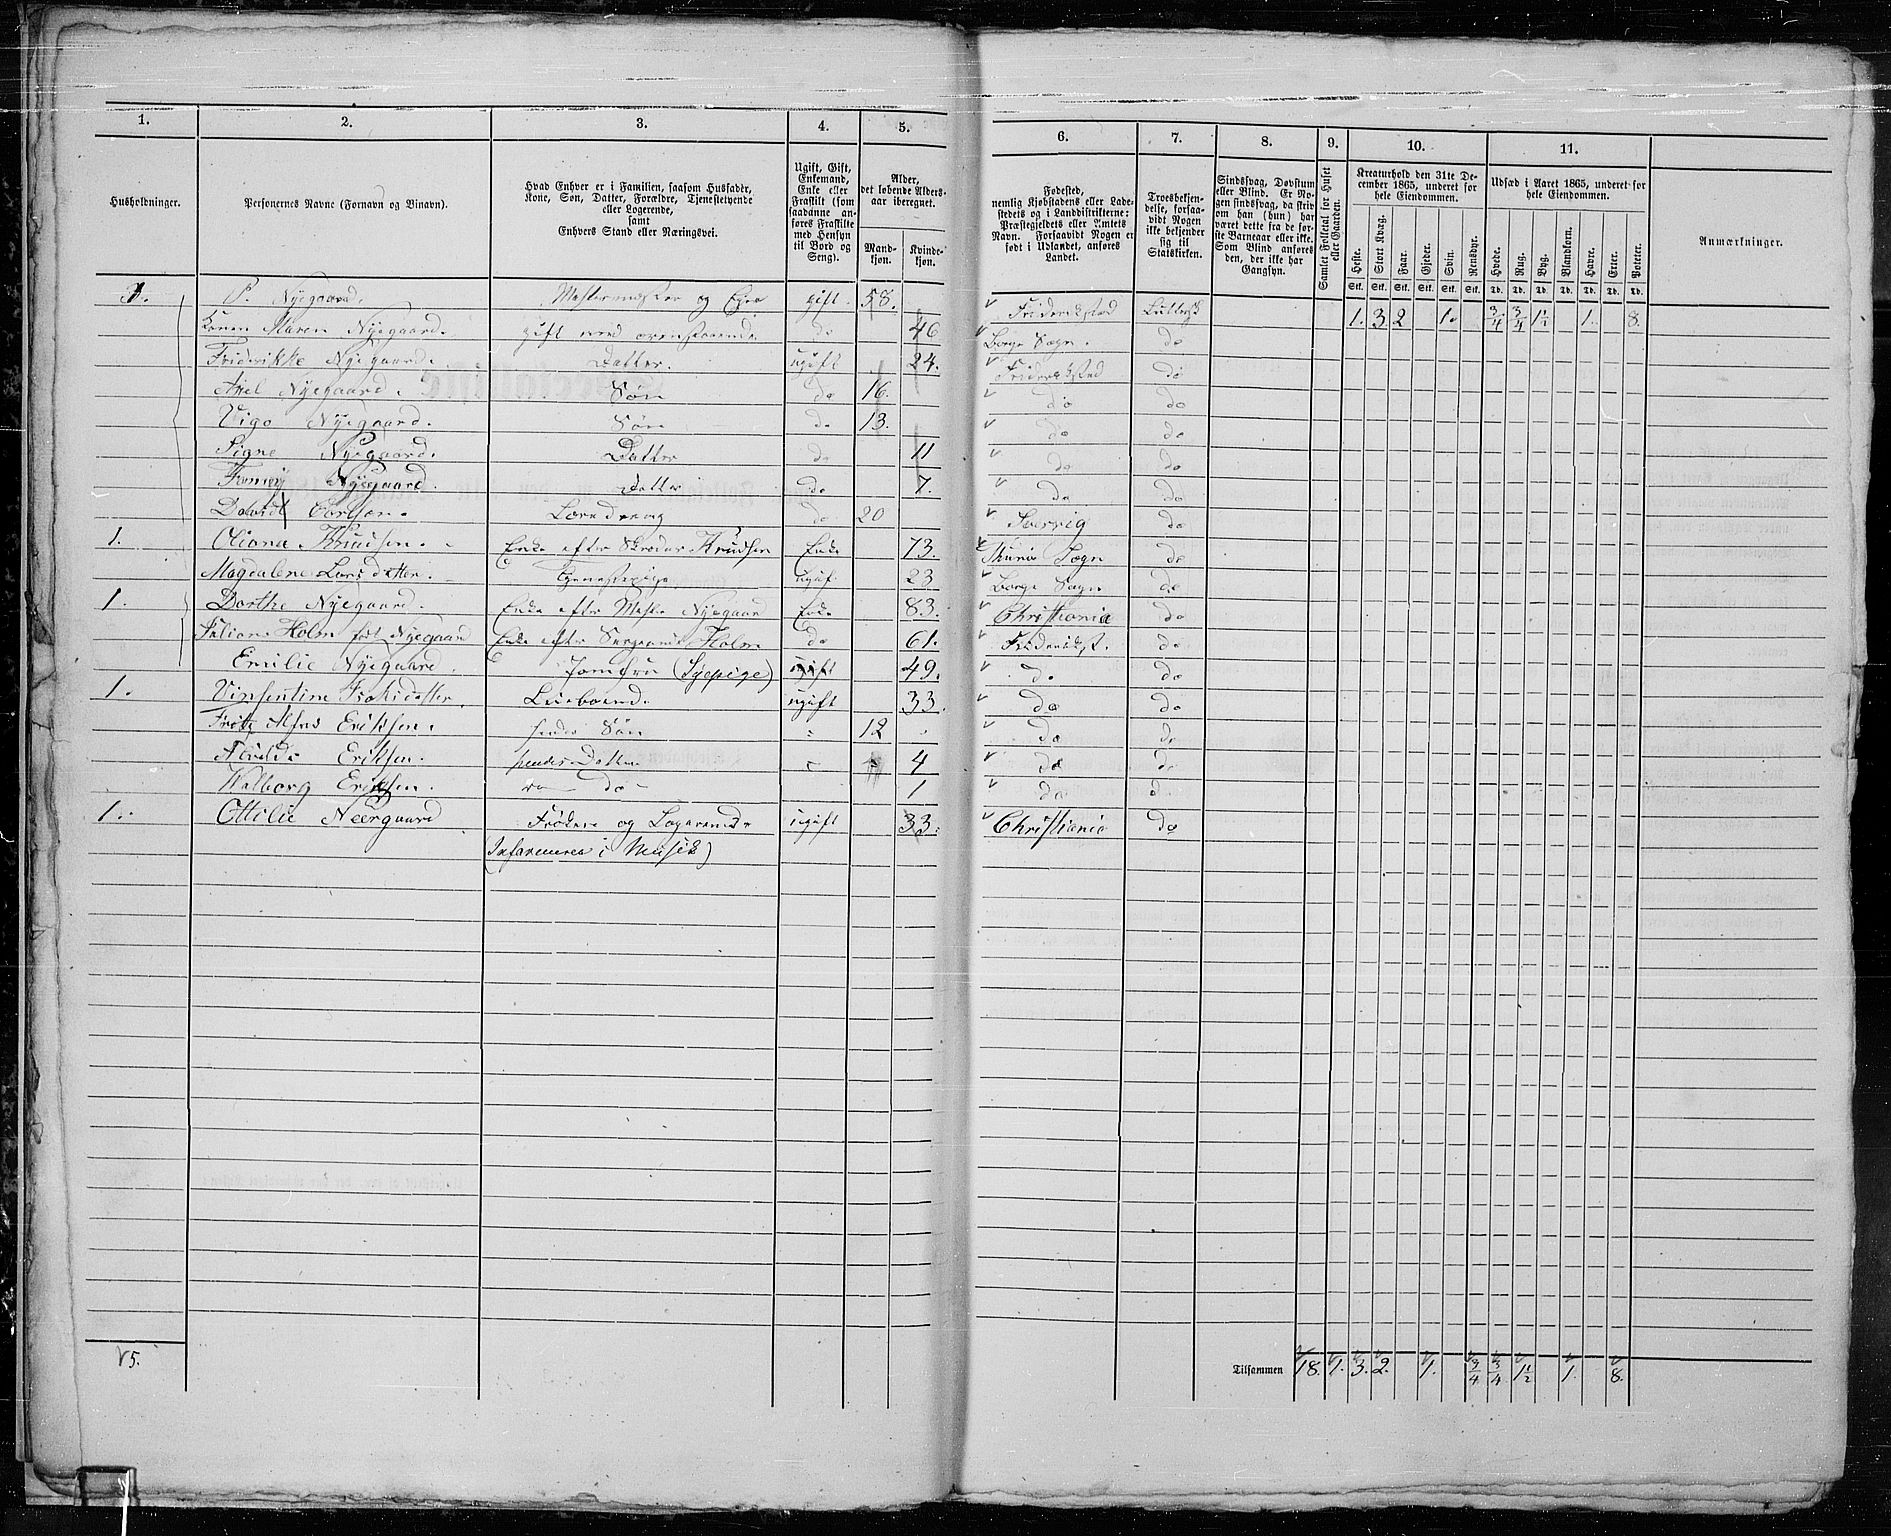 1. 2. 3. 4. 5. 6. 7. 8. 9. 10. 11.
Husholdninger.
Personernes Navne (Fornavn og Binavn).
Hvad Enhver er i Familien, saasom Husfader, Kone, Søn, Datter, Forældre, Tjenestetyende eller Logerende, samt Enhvers Stand eller Næringsvei.
Ugift, Gift, Enkemand, Enke eller Fraskilt (som saadanne anføres Fraskilte med Hensyn til Bord og Seng).
Alder, det løbende Aldersaar iberegnet.
Mandkjøn. Kvindekjøn.
Fødested, nemlig Kjøbstadens eller Ladestedets og i Landdistrikterne: Præstegjeldets eller Amtets Navn. Forsaavidt Nogen er født i Udlandet, anføres Landet.
Troesbekjendelse, forsaavidt Nogen ikke bekjender sig til Statskirken.
Sindssvag, Døvstum eller Blind. Er Nogen sindssvag, da skriv om han (hun) har været dette fra de første Barneaar eller ikke. Som Blind anføres den, der ikke har Gangsyn.
Samlet Folketal for Huset eller Gaarden.
Kreaturhold den 31te December 1865, underet for hele Eiendommen.
Heste. Stort Kvæg. Faar. Gjeder. Svin. Rensdyr.
Stk. Stk. Stk. Stk. Stk. Stk.
Udsæd i Aaret 1865, underet for hele Eiendommen.
Hvede. Rug. Byg. Blandkorn. Havre. Erter. Poteter.
Td. Td. Td. Td. Td. Td. Td.
Anmærkninger.
1. P. Nyegaard. og gift. 58. Frideriksstad Luthersk 1. 3 2 1. 3/4 3/4 1 1/2 1. 8.
Konen Maren Nyegaard. gift med do 46 Borge Sogn. do
Friderikke Nyegaard. Datter. ugift 24. Frideriksstad do
Axel Nyegaard. Søn do 16. do do
Vigo Nyegaard. Søn do 13. do do
Signe Nyegaard. Datter do 11 do do
Fanny Nyegaard. Datter do 7. do do
David Carlsen. Læredreng do 20 Sverrig do
1. Oliana Knudsen. Enke efter Knudsen Enke 73. Sogn do
Magdalene Larsdatter. Tjenestepige ugif. 23 Borge Sogn do
1. Dorthe Nyegaard. Enke efter Nyegaard Enke 83. Christiania do
Juliane Holm født Nyegaard Enke efter Sergeant Holm do 61. Frideriksst. do
Emilie Nyegaard. Jomfru (Syepige) ugift 49. do do
1. Vinsentine ugift 33. do do
Fritz Alfred Eriksen. hendes Søn 12 do do
Eriksen. hendes Datter 4 do do
Walborg Eriksen. do 1 do do
1. Ottilie Neergaard Frøken og Logerende ugift 33. Christiania do
(Informerer i Musik)
5. Tilsammen 18. 1. 3. 2. 1. 3/4 3/4 1 1/2 1. 8.